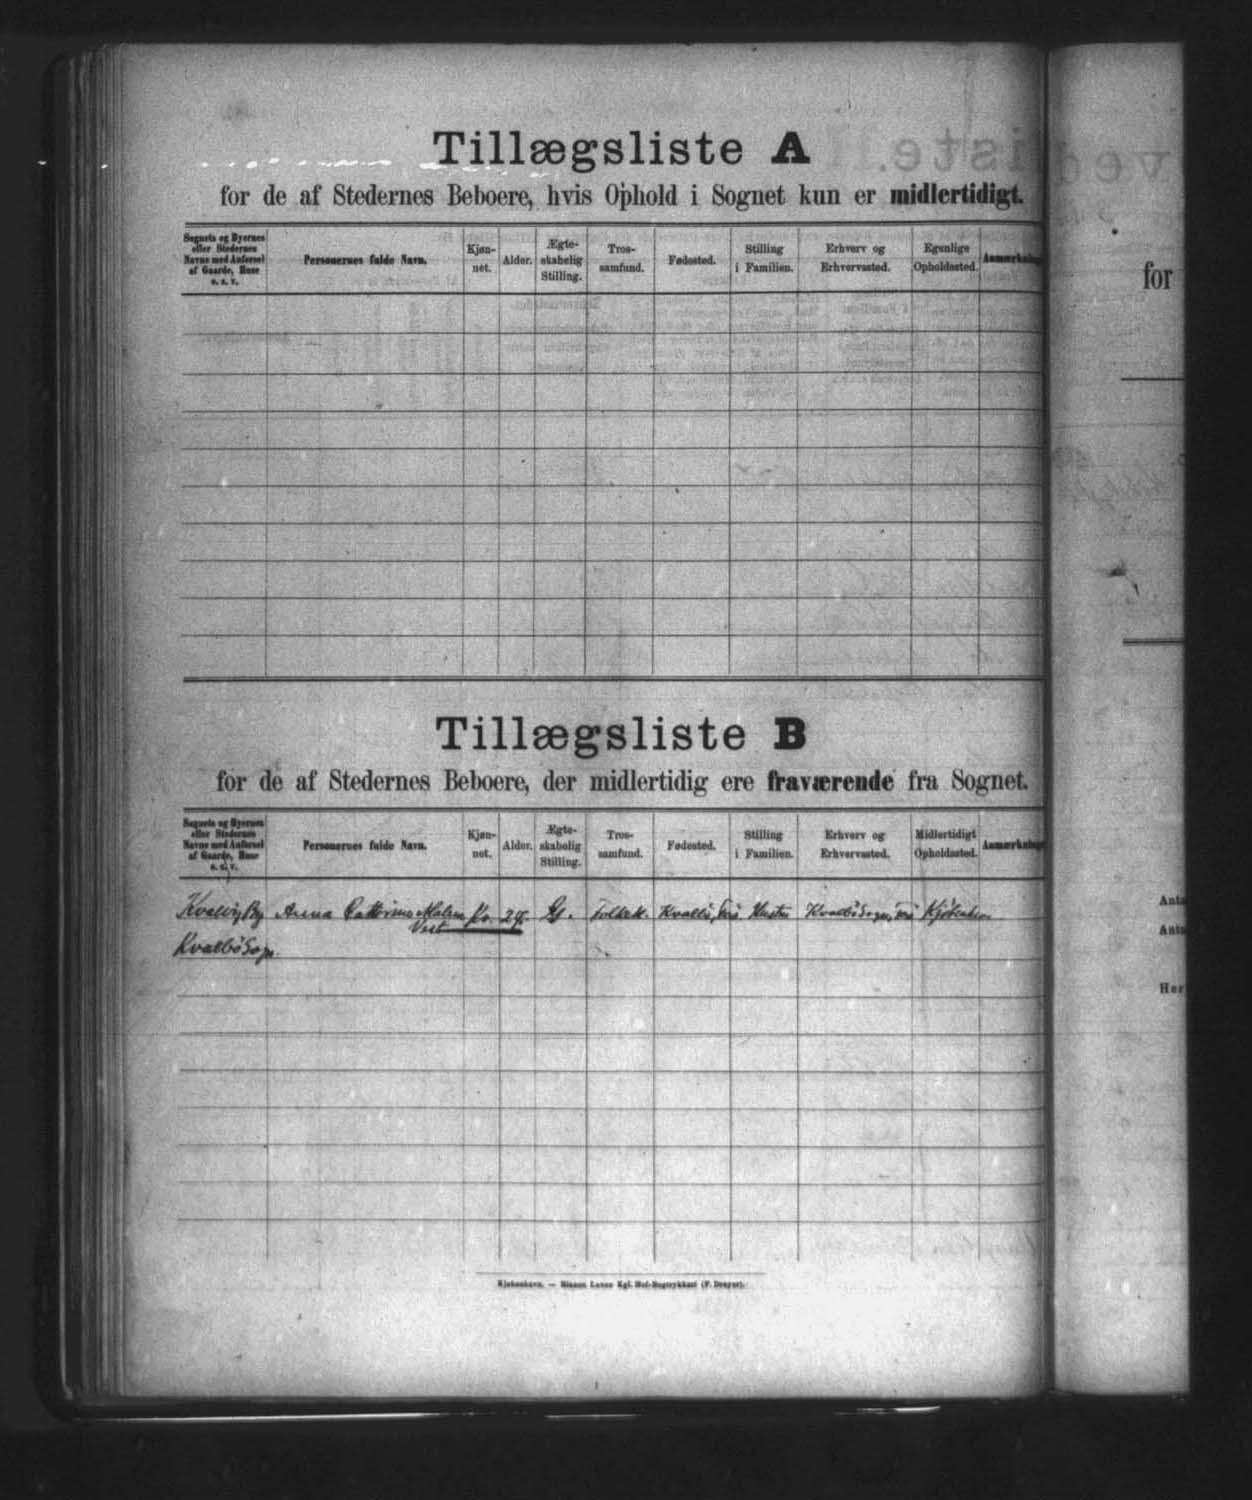 Tillægsliste A
for de af Stedernes Beboere, hvis Ophold i Sognet kun er midlertidigt.
Sognets og Byernes eller Stedernes Navne med Anførsel af Gaarde, Huse o. s. v.
Personernes fulde Navn.
Kjøn-
net.
Alder.
Ægte-
skabelig
Stilling.
Tros-
samfund.
Fødested.
Stilling
i Familien.
Erhverv og
Erhvervssted.
Egenlige
Opholdssted.
Tillægsliste B
for de af Stedernes Beboere, der midlertidig ere fraværende fra Sognet.
Sognets og Byernes
eller Stedernes
Navne med Anførsel
af Gaarde, Huse
o. s. v.
Personernes fulde Navn.
Kjøn-
net.
Alder.
Ægte-
skabelig
Stilling.
Tros-
samfund.
Fødested.
Stilling
i Familien.
Erhverv og
Erhvervssted.
Midlertidigt
Opholdssted.
Anna 24. G. Hustru
Kjøbenhavn. — Bianco Lunos Kgl. Hof-Bogtrykkeri (F. Dreyer).
for